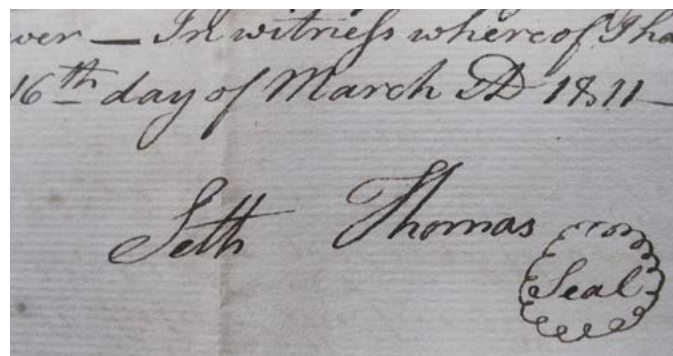 ver — In witness whereof I ha
16th day of March AD 1811 —
Seth Thomas
Seal